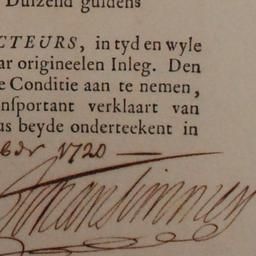 Duizend guldens
CTEURS, in tyd en wyle
ar origineelen Inleg. Den
e Conditie aan te nemen,
nsportant verklaart van
us beyde onderteekent in
ber 1720